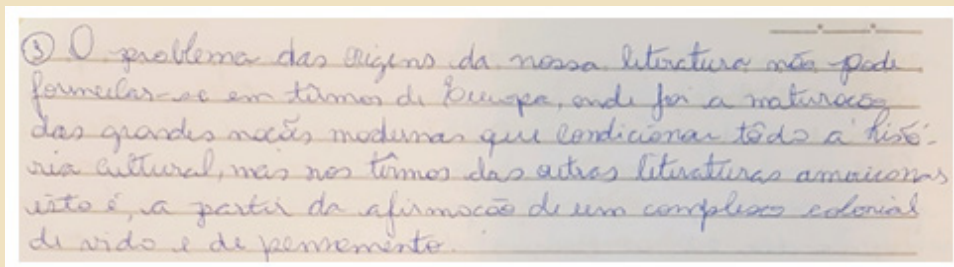 ③ O problema das origens da nossa literatura não pode
formular-se em têrmos de Europa, onde foi a maturação
das grandes nações modernas que condicionar tôda a histó-
ria cultural, mas nos têrmos das outras literaturas americanas
isto é, a partir da afirmação de um complexo colonial
de vida e de pensamento.